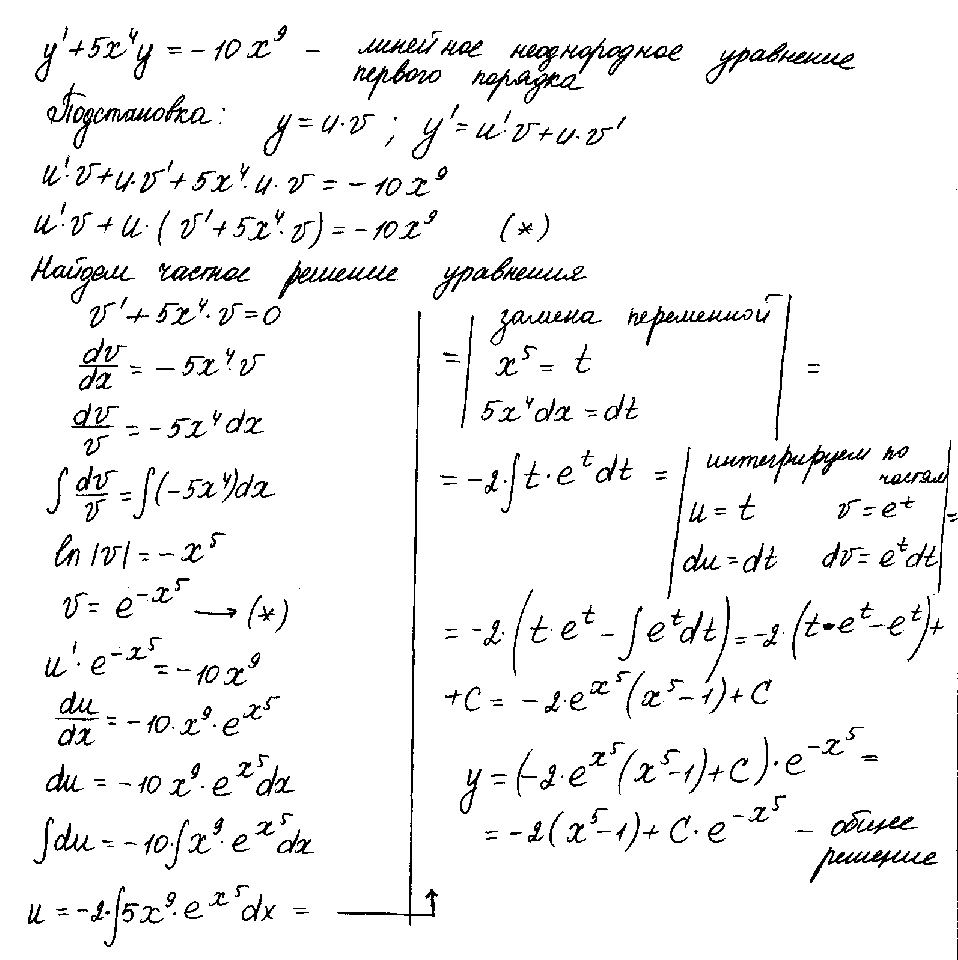 y' + 5x⁴y = -10x⁹ - линейное неоднородное уравнение
первого порядка
Подстановка: y = u·v ; y' = u'·v + u·v'
u'·v + u·v' + 5x⁴·u·v = -10x⁹
u'·v + u·( v' + 5x⁴·v) = -10x⁹ (*)
Найдем частное решение уравнения
v' + 5x⁴·v = 0
dv/dx = -5x⁴·v
dv/v = -5x⁴dx
∫ dv/v = ∫(-5x⁴)dx
ln|v| = -x⁵
v = e^(-x⁵) → (*)
u'·e^(-x⁵) = -10x⁹
du/dx = -10·x⁹·e^(x⁵)
du = -10x⁹·e^(x⁵)dx
∫du = -10·∫x⁹·e^(x⁵)dx
u = -2·∫5x⁹·e^(x⁵)dx =
= | замена переменной
x⁵ = t
5x⁴dx = dt | =
= -2·∫t·e^t dt = | интегрируем по
частям
u = t v = e^t
du = dt dv = e^t dt | =
= -2·(t·e^t - ∫e^t dt) = -2·(t·e^t - e^t) +
+C = -2·e^(x⁵)(x⁵-1) + C
y = (-2·e^(x⁵)(x⁵-1) + C)·e^(-x⁵) =
= -2(x⁵-1) + C·e^(-x⁵) - общее
решение